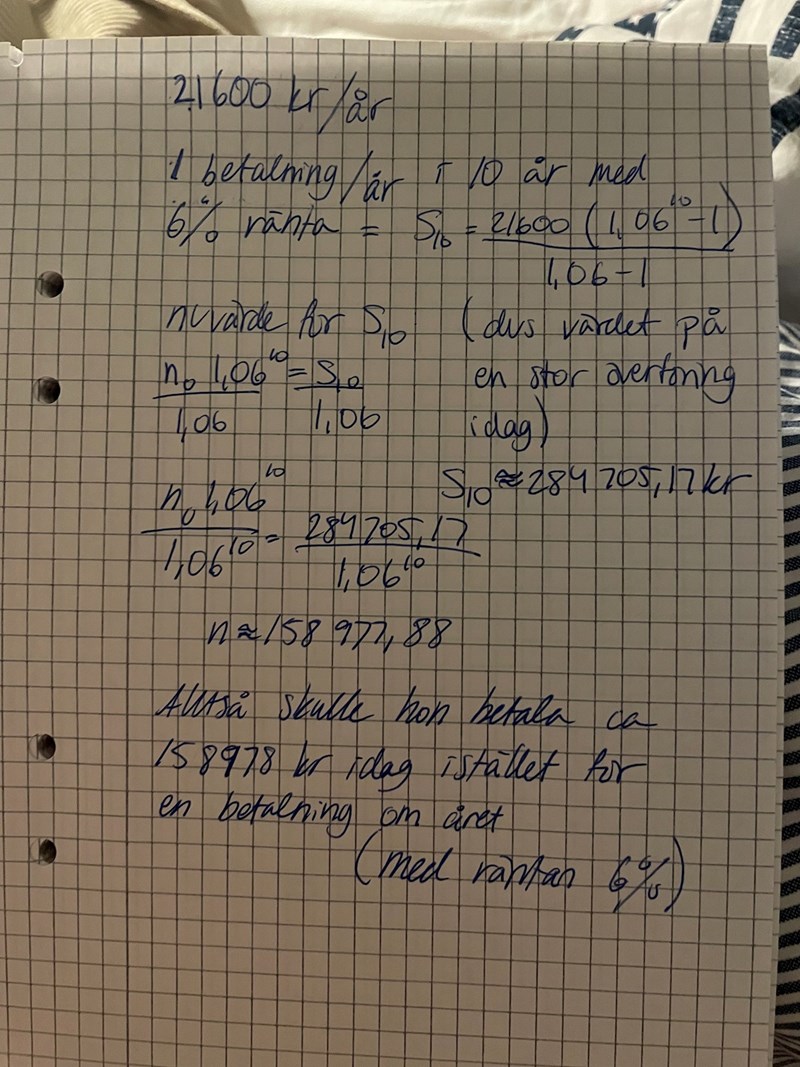 21600 kr/år
1 betalning/år i 10 år med
6% ränta = S₁₀ = 21600 (1,06¹⁰-1) / 1,06-1
nuvärde för S₁₀ (dvs värdet på
en stor överföring
idag)
n₀ 1,06¹⁰ / 1,06 = S₁₀ / 1,06
S₁₀ ≈ 284 705,17 kr
n₀ 1,06¹⁰ / 1,06¹⁰ = 284705,17 / 1,06¹⁰
n ≈ 158 977,88
Alltså skulle hon betala ca
158978 kr idag istället för
en betalning om året
(med räntan 6%)